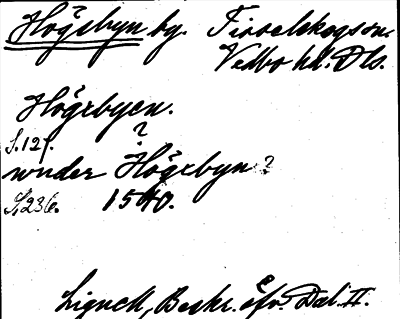 Högsbyn by. Tisselskogs sn.
Vedbo hd. Dls.
Högsbyen.
S. 127.
?
under Högsbyn?
S. 236. 1540.
Lignell, Beskr. öfv. Dal. II.